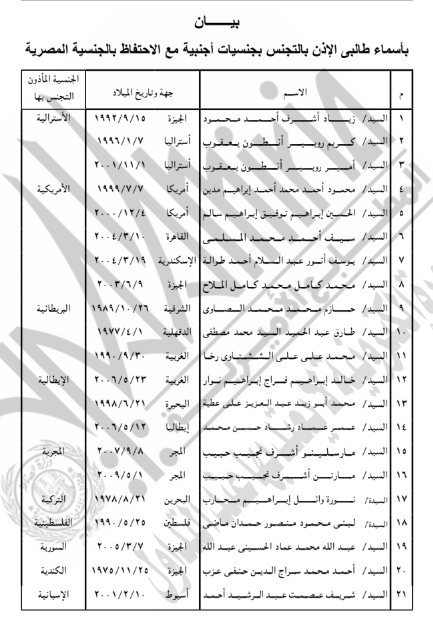 بيـــــان
بأسماء طالبى الإذن بالتجنس بجنسيات أجنبية مع الاحتفاظ بالجنسية المصرية
م الاســـم جهة وتاريخ الميلاد الجنسية المأذون التجنس بها
١ السيد/ زيـاد أشـرف أحـمـد محـمـود الجيزة ١٩٩٢/٩/١٥ الأسترالية
٢ السيد/ كـريم روبـيـر أنـطـون يـعـقـوب أستراليا ١٩٩٦/١/٧
٣ السيد/ أمـيـر روبـيـر أنـطـون يـعـقـوب أستراليا ٢٠٠١/١١/١
٤ السيد/ محمود أحمد محمد أحمد إبراهيم مدين أمريكا ١٩٩٩/٧/٧ الأمريكية
٥ السيد/ الحسين إبراهيم توفيق إبراهيم سالم أمريكا ٢٠٠٠/١٢/٤
٦ السيد/ سيـف أحـمـد محـمـد المسلـمـى القاهرة ٢٠٠٤/٣/١٠
٧ السيد/ يوسف أنور عبد السلام أحمد طوالة الإسكندرية ٢٠٠٤/٣/١٩
٨ السيد/ محـمـد كـامـل محـمـد كامل الملاح الجيزة ٢٠٠٣/٦/٩
٩ السيد/ حـازم محـمـد محـمـد الصـاوى الشرقية ١٩٨٩/١٠/٢٦ البريطانية
١٠ السيد/ طارق عبد الحميد السيد محمد مصطفى الدقهلية ١٩٧٧/٤/١
١١ السيد/ محـمـد عـلـى عـلـى الـشـشـتـاوى رخـا الغربية ١٩٩٠/٩/٣٠
١٢ السيد/ خـالـد إبـراهـيـم فـراج إبـراهـيـم نـوار الغربية ٢٠٠٦/٥/٢٣ الإيطالية
١٣ السيد/ محمد أبو زيد عبد العزيز على عطية البحيرة ١٩٩٨/٦/٢١
١٤ السيد/ عـمـر عـمـاد رشـاد حـسـن محـمـد إيطاليا ٢٠٠٦/٥/١٢
١٥ السيد/ مـارسـلـيـنـو أشـرف نجـيـب حـبـيـب المجر ٢٠٠٧/٩/٨ المجرية
١٦ السيد/ مـارتـن أشـرف نجـيـب حـبـيـب المجر ٢٠٠٩/٥/١
١٧ السيدة/ نـورة وائـل إبـراهـيـم محـارب البحرين ١٩٧٨/٨/٢١ التركية
١٨ السيدة/ لـبـنـى محـمـود مـنـصـور حـمـدان مـاضـى فلسطين ١٩٩٠/٥/٢٥ الفلسطينية
١٩ السيد/ عبد الله محمد عماد الحسينى عبد الله الجيزة ٢٠٠٥/٣/٧ السورية
٢٠ السيد/ أحمد محمد سراج الدين حنفى عزب الجيزة ١٩٧٥/١١/٢٥ الكندية
٢١ السيد/ شـريـف عـصـمـت عـبـد الـرشـيـد أحـمـد أسيوط ٢٠٠١/٢/١٠ الإسبانية